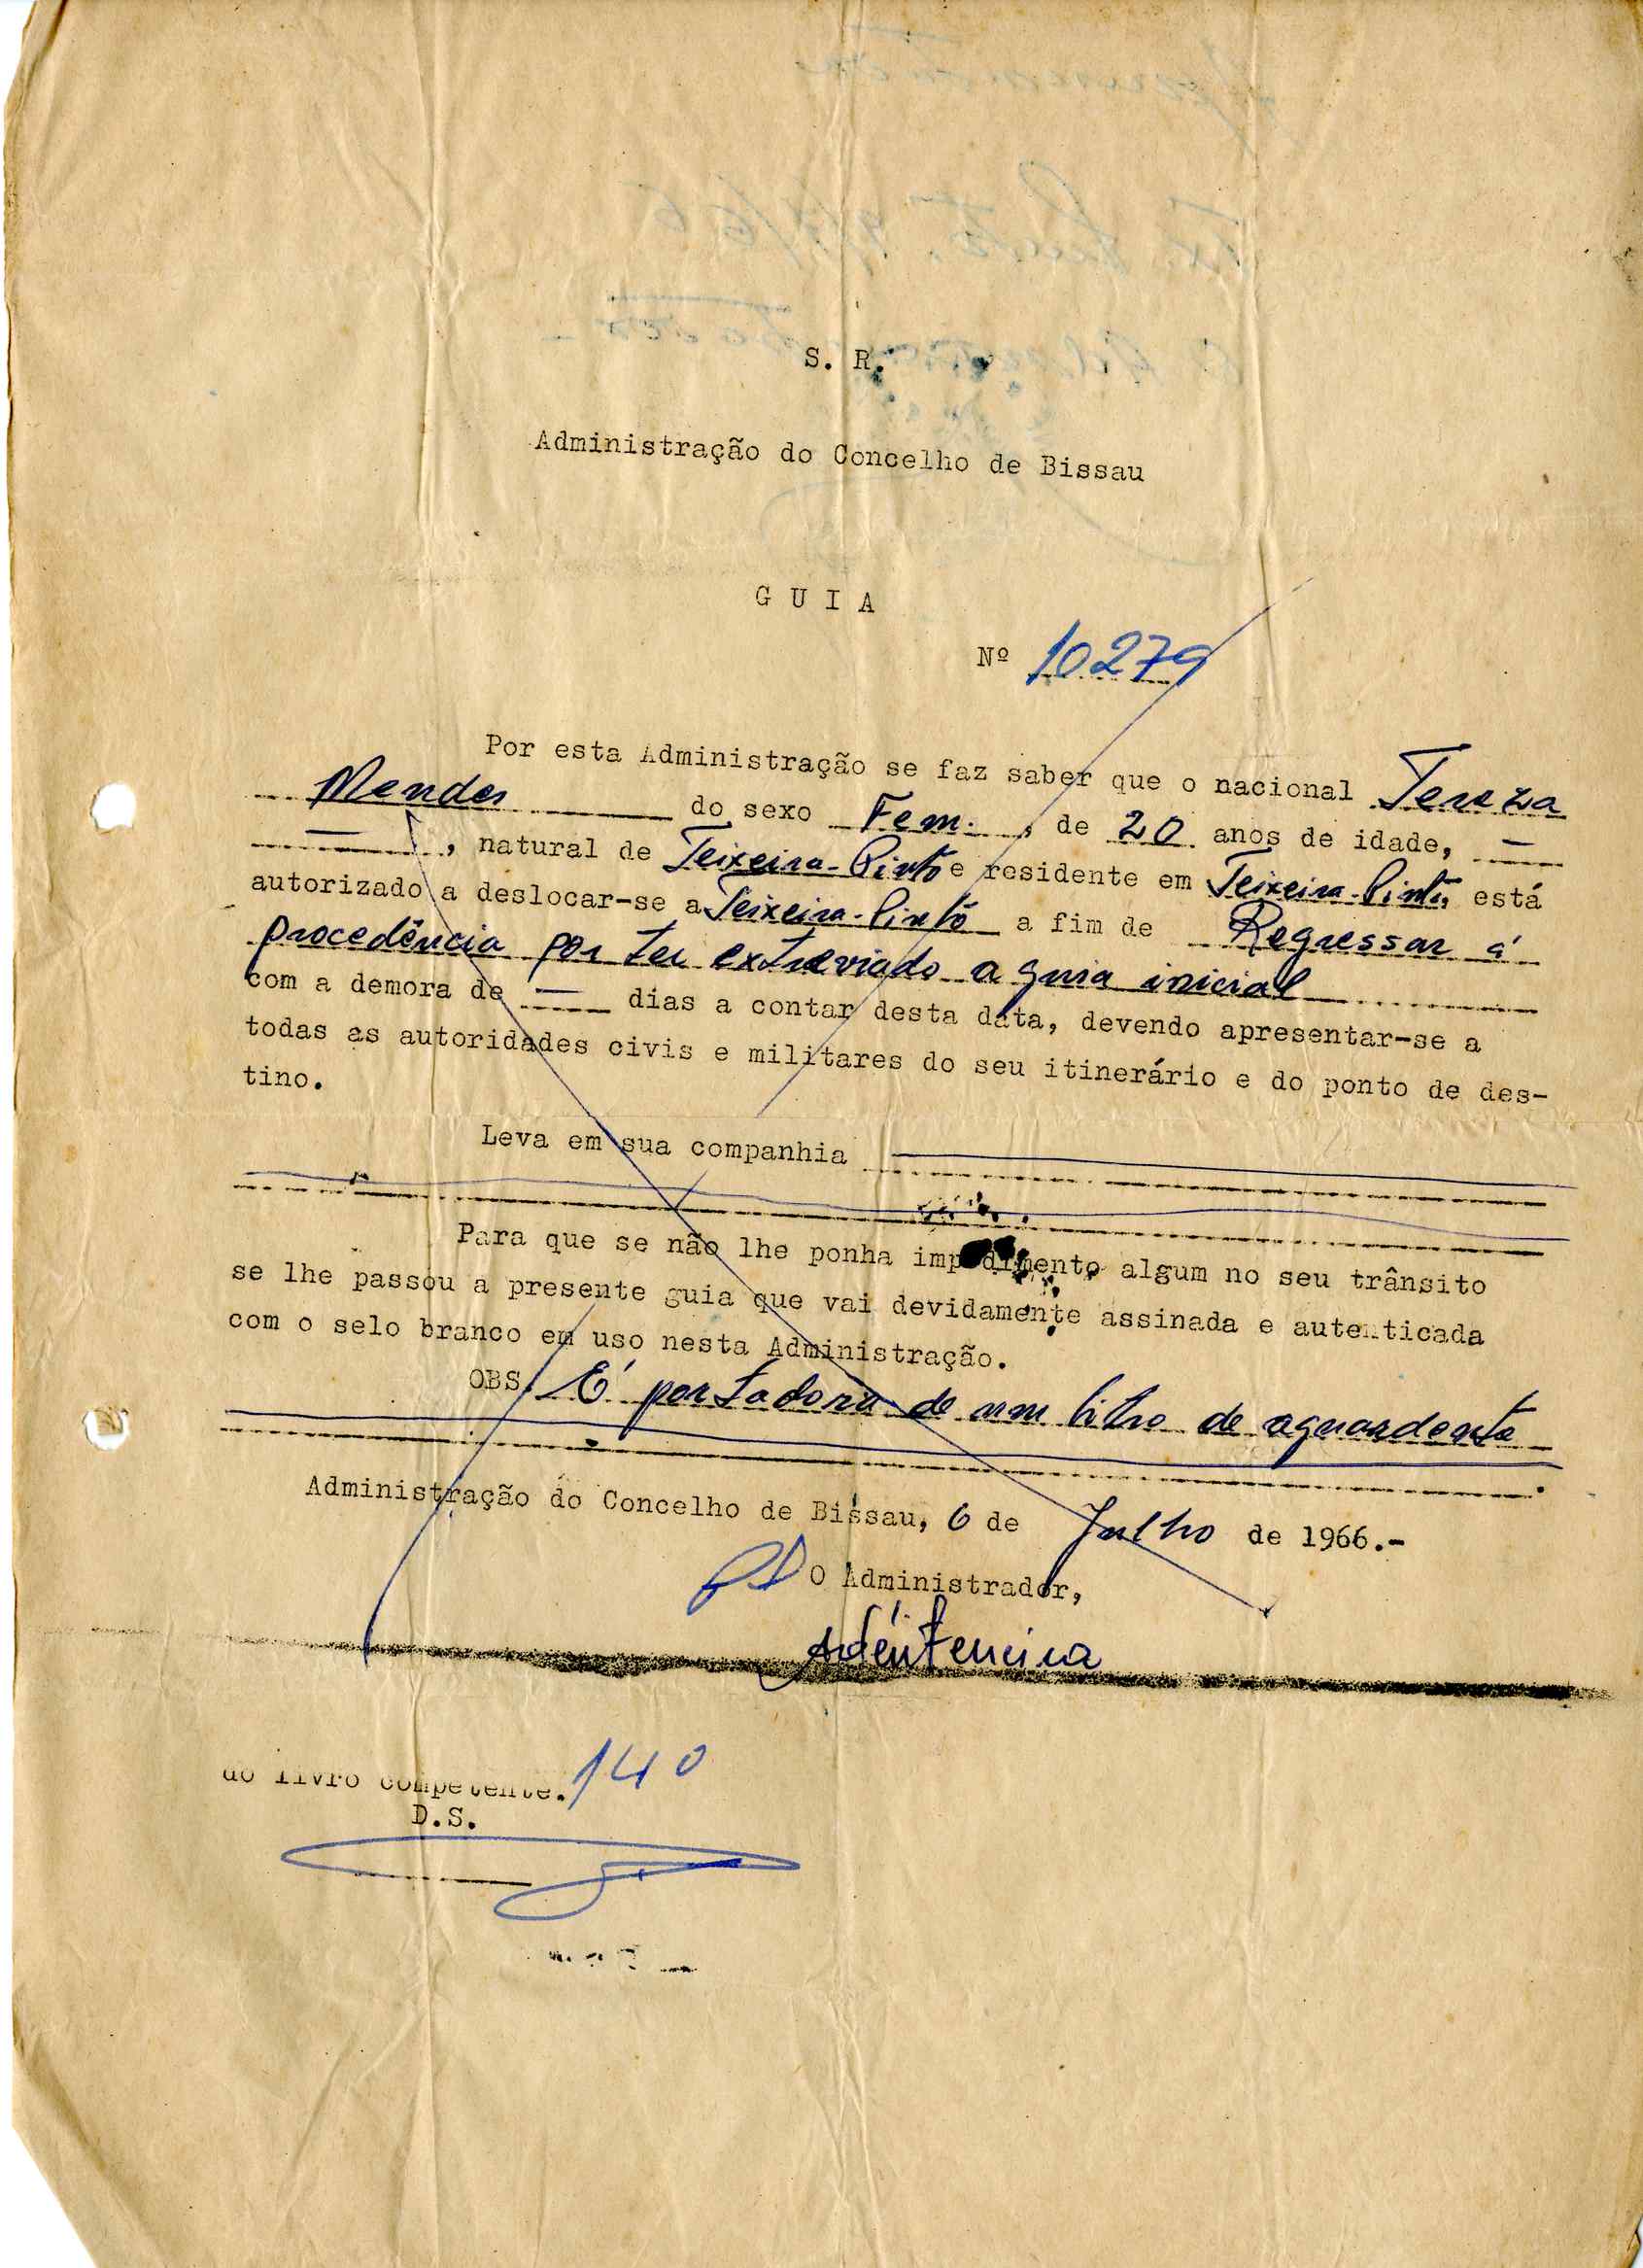 S. R.
Administração do Concelho de Bissau
G U I A
Nº 10279
Por esta Administração se faz saber que o nacional Tereza
Mendes do sexo Fem. , de 20 anos de idade, —
— , natural de Teixeira-Pinto e residente em Teixeira-Pinto, está
autorizado a deslocar-se a Teixeira-Pinto a fim de Regressar á
procedência por ter extraviado a guia inicial
com a demora de — dias a contar desta data, devendo apresentar-se a
todas as autoridades civis e militares do seu itinerário e do ponto de des-
tino.
Leva em sua companhia
Para que se não lhe ponha impedimento algum no seu trânsito
se lhe passou a presente guia que vai devidamente assinada e autenticada
com o selo branco em uso nesta Administração.
OBS. É portadora de um litro de aguardente
Administração do Concelho de Bissau, 6 de Julho de 1966.-
O Administrador,
do livro competente. 140
D.S.